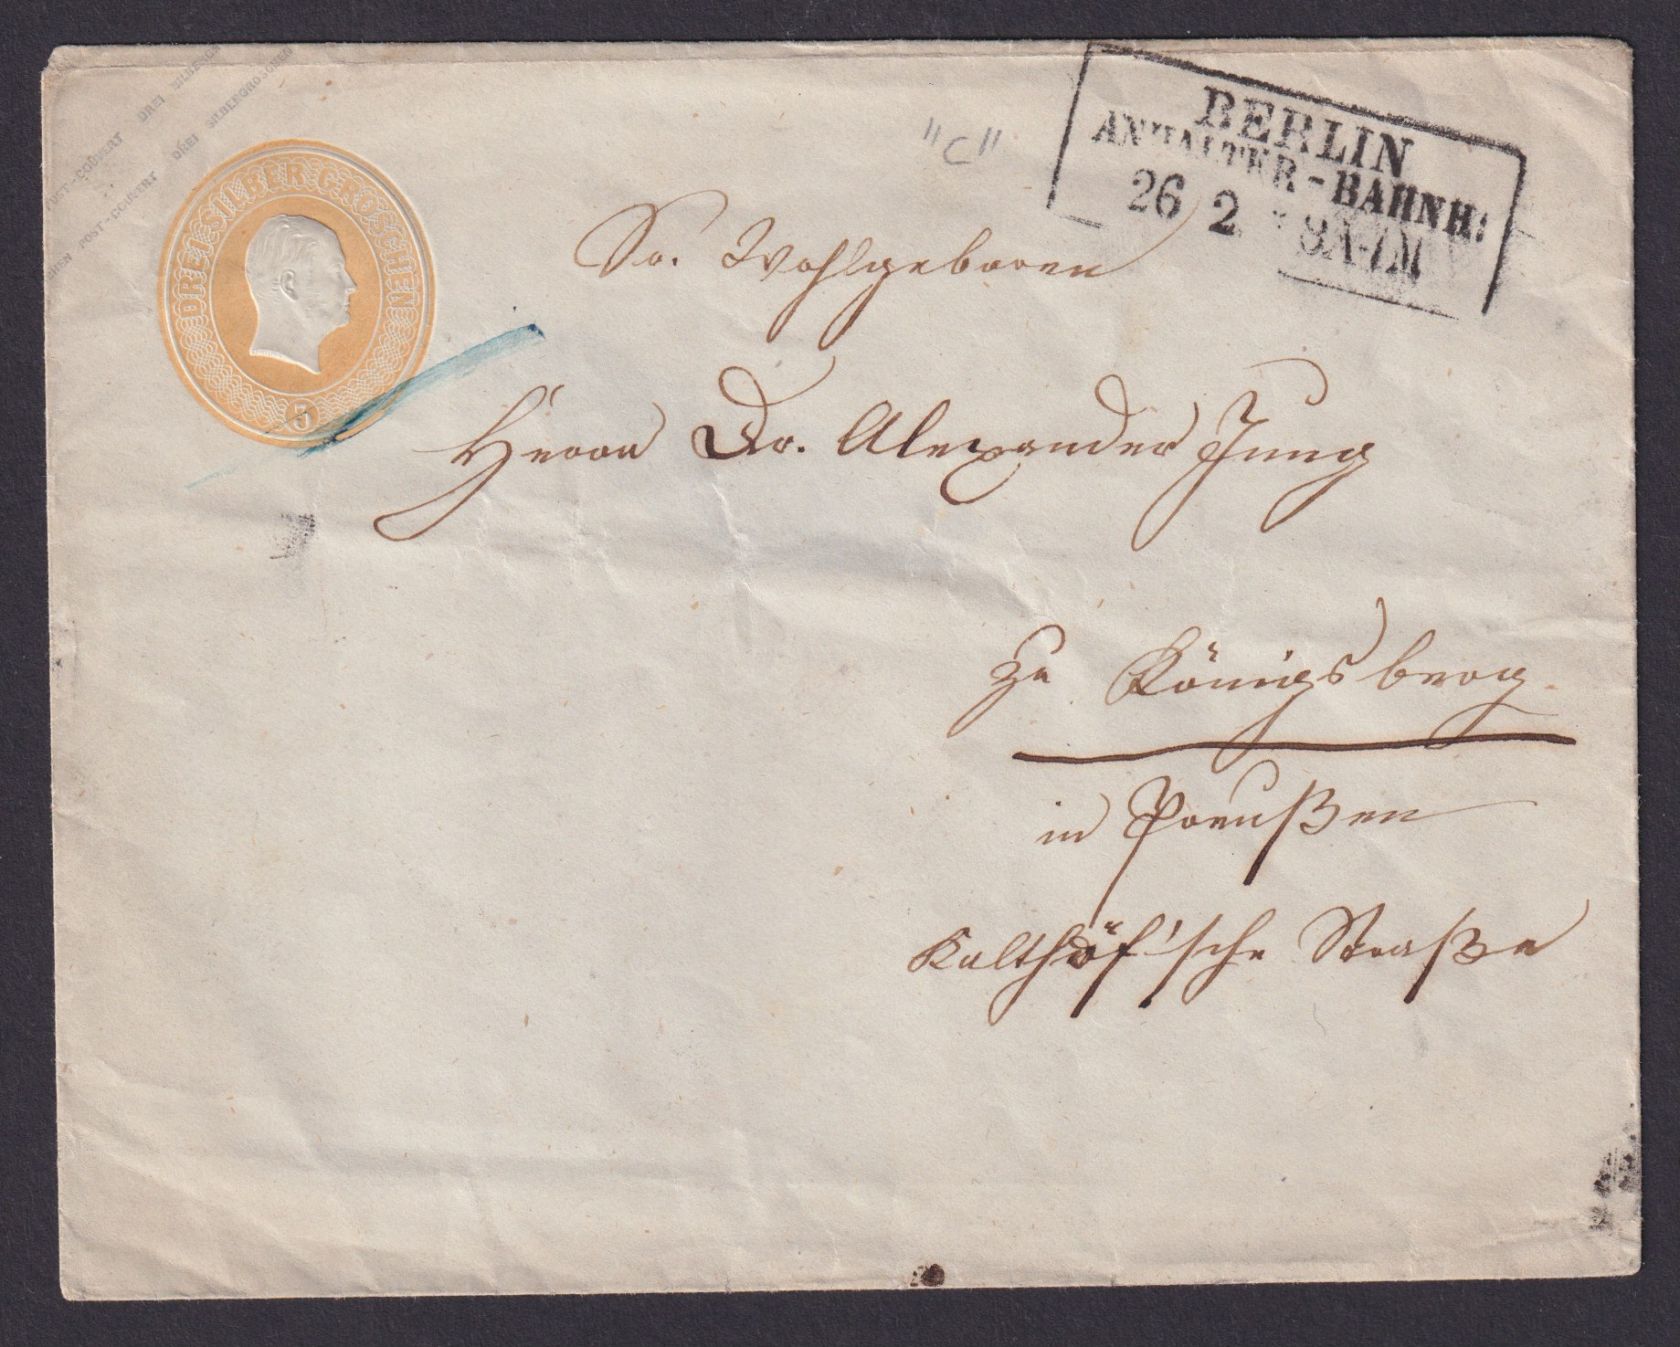 POST-COUVERT DREI SILBERGROSCHEN
POST-COUVERT DREI SILBERGROSCHEN
DREI SILBERGROSCHEN
3
"C"
BERLIN
ANHALTER-BAHNH:
26 2
Sr. Wohlgeboren
Herrn Dr. Alexander Jung
zu Königsberg
in Preußen
Kalthöf'sche Straße